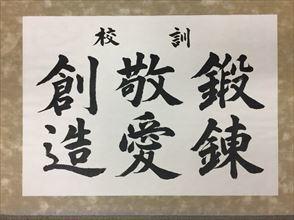 校訓
鍛錬
敬愛
創造